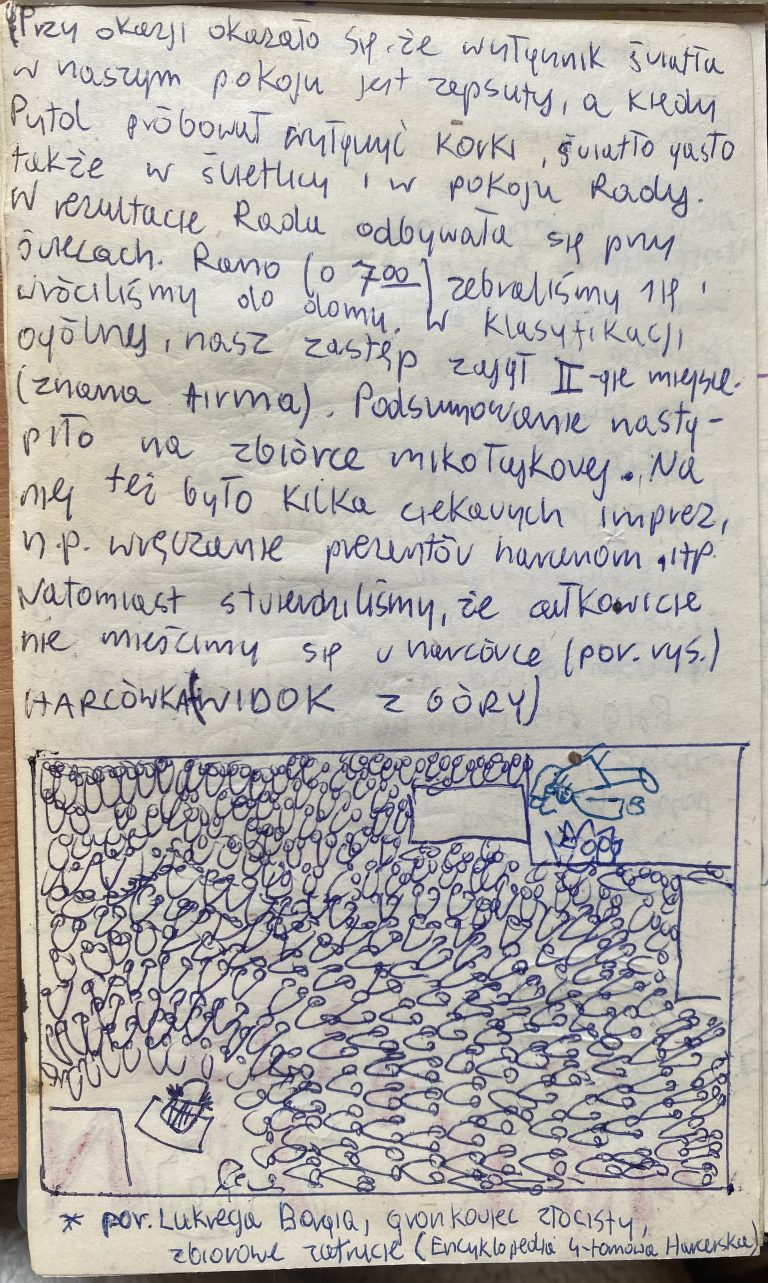 Przy okazji okazało się, że wyłącznik światła
w naszym pokoju jest zepsuty, a kiedy
Pytol próbował wyłączyć korki, światło gasło
także w świetlicy i w pokoju Rady.
W rezultacie Rada odbywała się przy
świecach. Rano (o 700) zebraliśmy się i
wróciliśmy do domu. W klasyfikacji
ogólnej, nasz zastęp zajął II-gie miejsce.
(znana firma). Podsumowanie nastą-
piło na zbiórce mikołajkowej. Na
niej też było kilka ciekawych imprez,
n.p. wręczanie prezentów harcerzom, itp.
Natomiast stwierdziliśmy, że całkowicie
nie mieścimy się w harcówce (por. rys.)
HARCÓWKA (WIDOK Z GÓRY)
* por. Lukrecja Borgia, gronkowiec złocisty,
zbiorowe zatrucie (Encyklopedia 4-tomowa Harcerska)